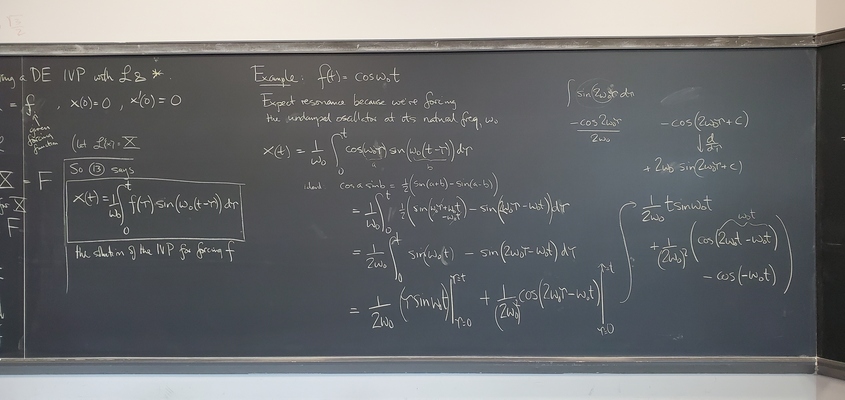 ng a DE IVP with ℒ & *.
= f, x(0)=0, x'(0)=0
given
forcing
function
(let ℒ(x) = X
X = F
F
So (13) says
x(t) = 1/ω₀ ∫₀ᵗ f(τ) sin(ω₀(t-τ)) dτ
the solution of the IVP for forcing f
Example: f(t) = cos ω₀t
Expect resonance because we're forcing
the undamped oscillator at its natural freq. ω₀
x(t) = 1/ω₀ ∫₀ᵗ cos(ω₀τ) sin(ω₀(t-τ)) dτ
a b
ident: cos a sin b = 1/2 (sin(a+b) - sin(a-b))
= 1/ω₀ ∫₀ᵗ 1/2 (sin(ω₀τ+ω₀t-ω₀τ) - sin(2ω₀τ-ω₀t)) dτ
= 1/2ω₀ ∫₀ᵗ sin(ω₀t) - sin(2ω₀τ-ω₀t) dτ
= 1/2ω₀ (τ sin ω₀t) |τ=0 τ=t + 1/(2ω₀)² cos(2ω₀τ-ω₀t) | τ=0 τ=t
∫ sin(2ω₀τ) dτ
-cos 2ω₀τ / 2ω₀
-cos(2ω₀τ+c)
↓ d/dτ
+2ω₀ sin(2ω₀τ+c)
1/2ω₀ t sin ω₀t
ω₀t
+ 1/(2ω₀)² (cos(2ω₀t-ω₀t)
- cos(-ω₀t))